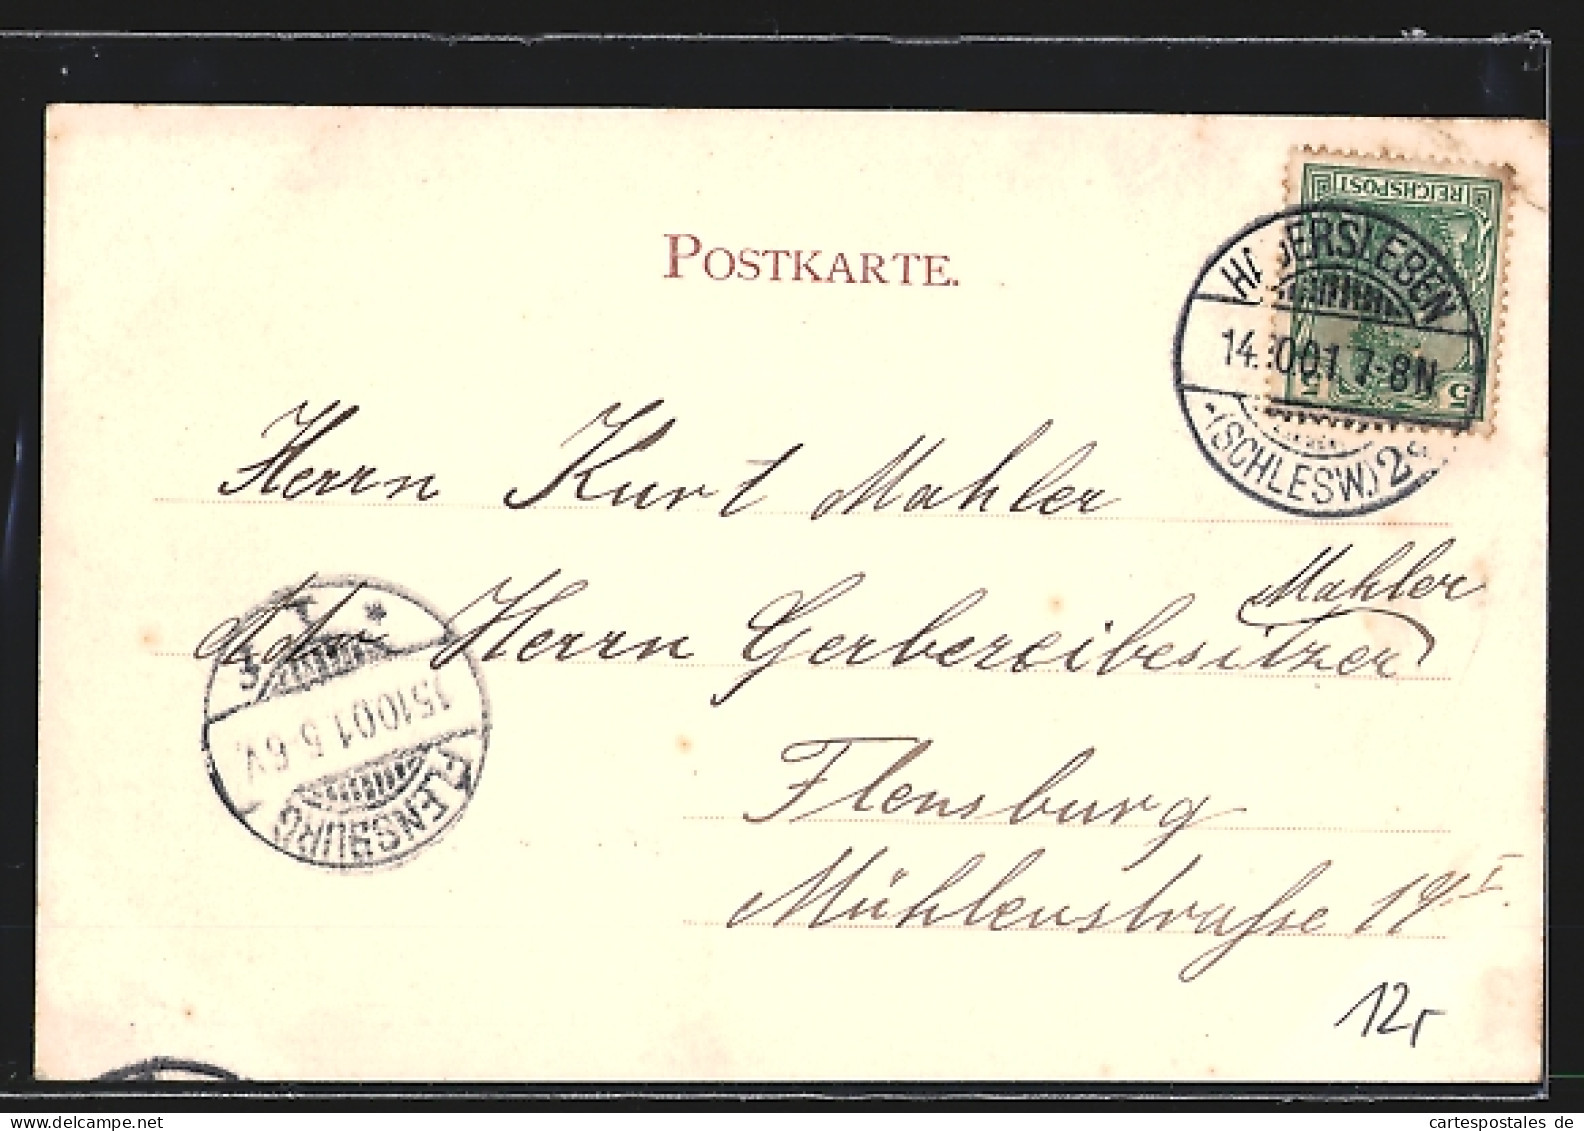 POSTKARTE.
REICHSPOST
5 5
HADERSLEBEN
14.10.01.7-8N
*(SCHLESW.)2
Herrn Kurt Mahler
Mahler
Adr Herrn Gerbereibesitzer
Flensburg
Mühlenstraße 19 I.
FLENSBURG
15.10.01.5-6V.
12,-
cartespostales de